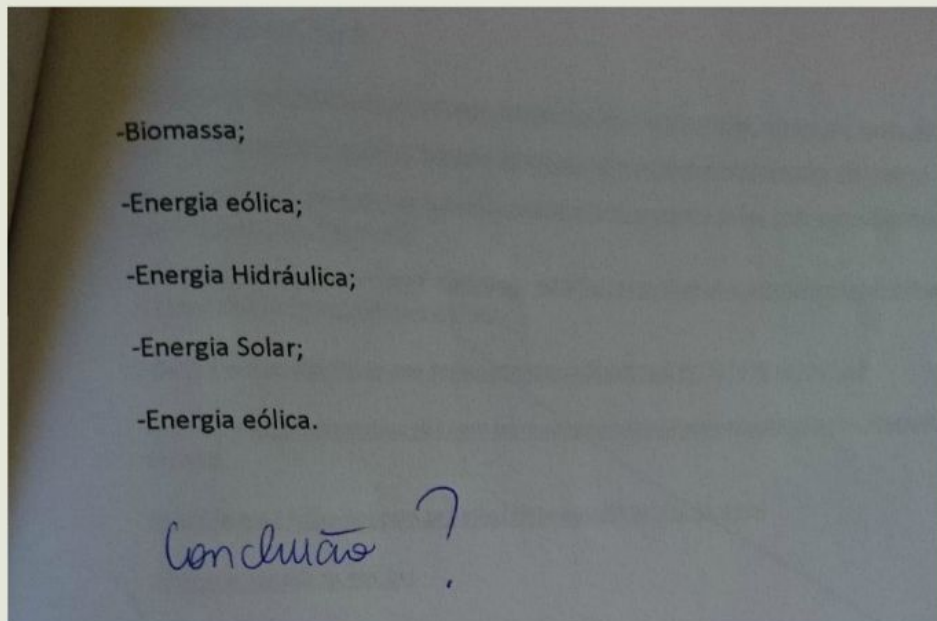 -Biomassa;
-Energia eólica;
-Energia Hidráulica;
-Energia Solar;
-Energia eólica.
Conclusão ?